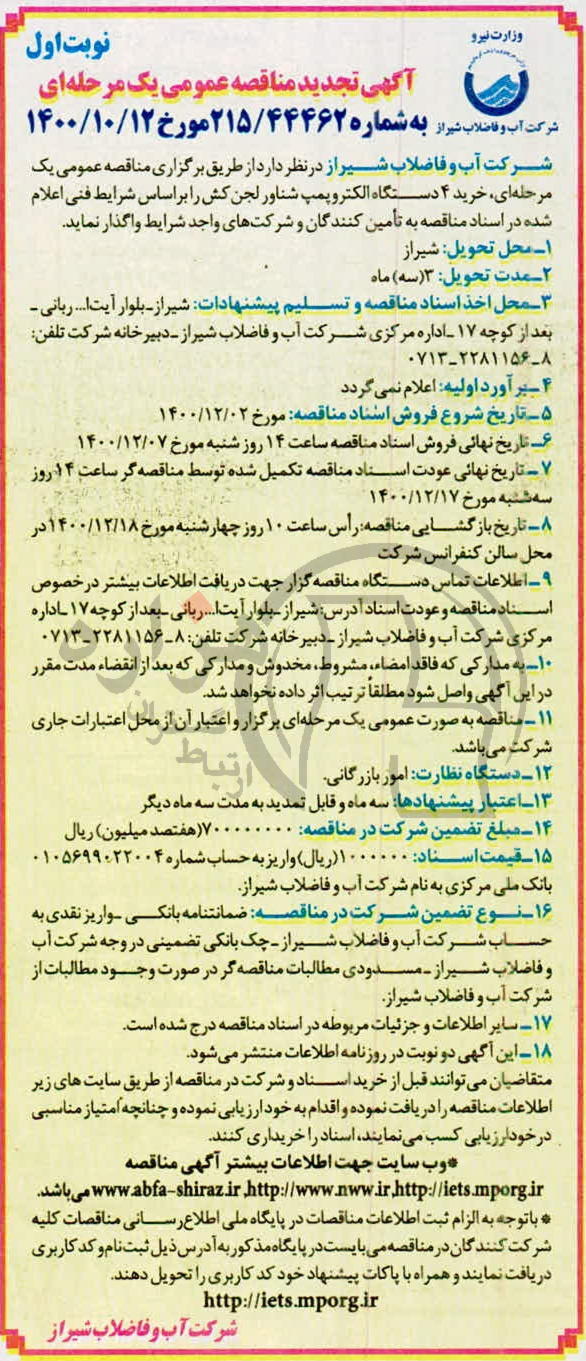 وزارت نیرو
شرکت آب و فاضلاب شیراز
نوبت اول
آگهی تجدید مناقصه عمومی یک مرحله‌ای
به شماره ۲۱۵/۴۴۴۶۲ مورخ ۱۴۰۰/۱۰/۱۲
شرکت آب و فاضلاب شیراز در نظر دارد از طریق برگزاری مناقصه عمومی یک
مرحله‌ای، خرید ۴ دستگاه الکتروپمپ شناور لجن کش را براساس شرایط فنی اعلام
شده در اسناد مناقصه به تأمین کنندگان و شرکت‌های واجد شرایط واگذار نماید.
۱ـ محل تحویل: شیراز
۲ـ مدت تحویل: ۳(سه) ماه
۳ـ محل اخذ اسناد مناقصه و تسلیم پیشنهادات: شیراز ـ بلوار آیت‌ا... ربانی ـ
بعد از کوچه ۱۷ ـ اداره مرکزی شرکت آب و فاضلاب شیراز ـ دبیرخانه شرکت تلفن:
۸ ـ ۲۲۸۱۱۵۶ ـ ۰۷۱۳
۴ـ برآورد اولیه: اعلام نمی گردد
۵ـ تاریخ شروع فروش اسناد مناقصه: مورخ ۱۴۰۰/۱۲/۰۲
۶ـ تاریخ نهائی فروش اسناد مناقصه ساعت ۱۴ روز شنبه مورخ ۱۴۰۰/۱۲/۰۷
۷ـ تاریخ نهائی عودت اسناد مناقصه تکمیل شده توسط مناقصه گر ساعت ۱۴ روز
سه‌شنبه مورخ ۱۴۰۰/۱۲/۱۷
۸ـ تاریخ بازگشایی مناقصه: رأس ساعت ۱۰ روز چهارشنبه مورخ ۱۴۰۰/۱۲/۱۸ در
محل سالن کنفرانس شرکت
۹ـ اطلاعات تماس دستگاه مناقصه گزار جهت دریافت اطلاعات بیشتر در خصوص
اسناد مناقصه و عودت اسناد آدرس: شیراز ـ بلوار آیت‌ا... ربانی ـ بعد از کوچه ۱۷ ـ اداره
مرکزی شرکت آب و فاضلاب شیراز ـ دبیرخانه شرکت تلفن: ۸ ـ ۲۲۸۱۱۵۶ ـ ۰۷۱۳
۱۰ـ به مدارکی که فاقد امضاء، مشروط، مخدوش و مدارکی که بعد از انقضاء مدت مقرر
در این آگهی واصل شود مطلقاً ترتیب اثر داده نخواهد شد.
۱۱ـ مناقصه به صورت عمومی یک مرحله‌ای برگزار و اعتبار آن از محل اعتبارات جاری
شرکت می‌باشد.
۱۲ـ دستگاه نظارت: امور بازرگانی.
۱۳ـ اعتبار پیشنهادها: سه ماه و قابل تمدید به مدت سه ماه دیگر
۱۴ـ مبلغ تضمین شرکت در مناقصه: ۷۰۰۰۰۰۰۰۰(هفتصد میلیون) ریال
۱۵ـ قیمت اسناد: ۱۰۰۰۰۰۰(ریال) واریز به حساب شماره ۰۱۰۵۶۹۹۰۲۲۰۰۴
بانک ملی مرکزی به نام شرکت آب و فاضلاب شیراز.
۱۶ـ نوع تضمین شرکت در مناقصه: ضمانتنامه بانکی ـ واریز نقدی به
حساب شرکت آب و فاضلاب شیراز ـ چک بانکی تضمینی در وجه شرکت آب
و فاضلاب شیراز ـ مسدودی مطالبات مناقصه گر در صورت وجود مطالبات از
شرکت آب و فاضلاب شیراز.
۱۷ـ سایر اطلاعات و جزئیات مربوطه در اسناد مناقصه درج شده است.
۱۸ـ این آگهی دو نوبت در روزنامه اطلاعات منتشر می‌شود.
متقاضیان می‌توانند قبل از خرید اسناد و شرکت در مناقصه از طریق سایت های زیر
اطلاعات مناقصه را دریافت نموده و اقدام به خودارزیابی نموده و چنانچه امتیاز مناسبی
در خودارزیابی کسب می‌نمایند، اسناد را خریداری کنند.
*وب سایت جهت اطلاعات بیشتر آگهی مناقصه
www.abfa-shiraz.ir ,http://www.nww.ir,http://iets.mporg.ir می‌باشد.
* باتوجه به الزام ثبت اطلاعات مناقصات در پایگاه ملی اطلاع‌رسانی مناقصات کلیه
شرکت کنندگان در مناقصه می‌بایست در پایگاه مذکور به آدرس ذیل ثبت‌نام و کد کاربری
دریافت نمایند و همراه با پاکات پیشنهاد خود کد کاربری را تحویل دهند.
http://iets.mporg.ir
شرکت آب و فاضلاب شیراز